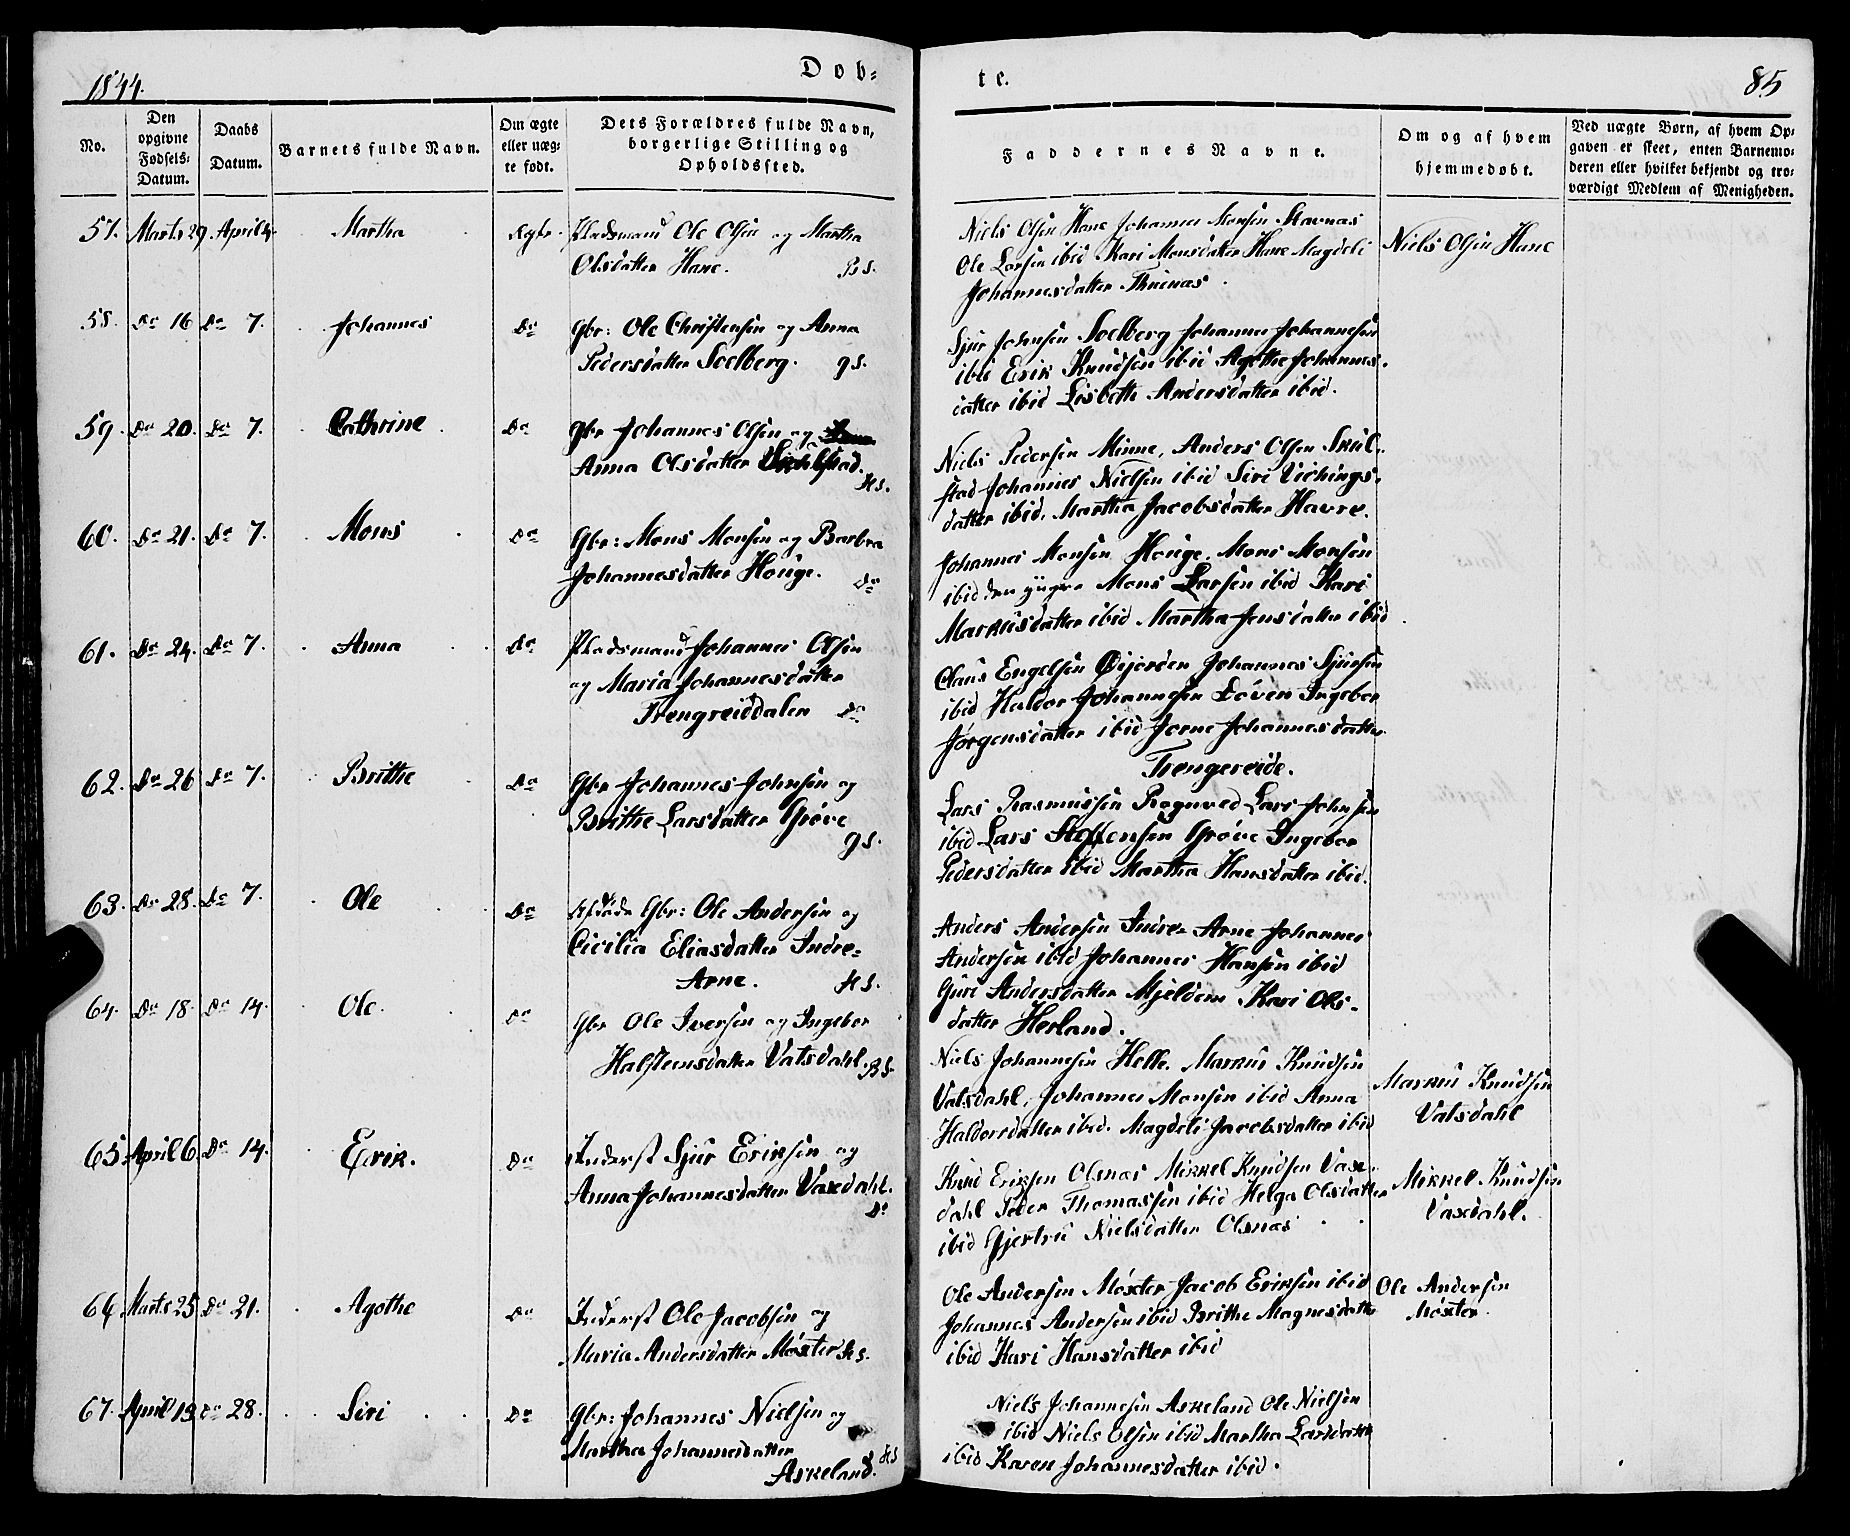 1844.
Døb-
te.
85
No.
Den opgivne Fødsels-Datum.
Daabs Datum.
Barnets fulde Navn.
Om ægte eller uæg-te født.
Dets Forældres fulde Navn, borgerlige Stilling og Opholdssted.
Faddernes Navne.
Om og af hvem hjemmedøbt.
Ved uægte Børn, af hvem Op-gaven er skeet, enten Barnemo-deren eller hvilket bekjendt og tro-værdigt Medlem af Menigheden.
57. Marts 29 April 4. Martha Ægte. Pladsmand Ole Olsen og Martha
Olsdatter Hane. BS.
Niels Olsen Hane Johannes Monsen Stavnæs
Ole Larsen ibid Kari Monsdatter Hane Magdeli
Johannesdatter
Niels Olsen Hane
58. Do 16 Do 7. Johannes Do Gbr: Ole Christensen og Anna
Pedersdatter Soelberg. gs.
Sjur Johnsen Soelberg Johannes Johannessen
ibid Erik Knudsen ibid Agothe Johannes-
datter ibid Lisbeth Andersdatter ibid.
59. Do 20. Do 7. Cathrine Do Gbr Johannes Olsen og
Anna Olsdatter Skulstad. Hs.
Niels Pedersen Minne, Anders Olsen Skul-
stad Johannes Nielsen ibid Siri Vichings-
datter ibid. Martha Jacobsdatter Havre.
60. Do 21. Do 7. Mons Do Gbr: Mons Monsen og Barbra
Johannesdatter Houge. Do
Johannes Monsen Houge. Mons Monsen
ibid den yngre Mons Larsen ibid Kari
Markusdatter ibid Martha Jensdatter ibid.
61. Do 24. Do 7. Anna Do Pladsmand Johannes Olsen
og Maria Johannesdatter
Trengreiddalen Do
Claus Engelsen Øijerden Johannes Sjursen
ibid Haldor Johannesen Løven Ingebor
Jørgensdatter ibid Jorne Johannesdatter
Trengereide.
62. Do 26 Do 7. Brithe Do Gbr Johannes Johnsen og
Brithe Larsdatter Grøve gs.
Lars Rasmussen Rognved Lars Johnsen
ibid Lars Steffensen Grøve Ingebor
Pedersdatter ibid Martha Hansdatter ibid.
63. Do 28. Do 7. Ole Do Afdøde Gbr: Ole Andersen og
Cicilia Eliasdatter Indre-
Arne. Hs.
Anders Andersen Indre-Arne Johannes
Andersen ibid Johannes Hansen ibid
Guri Andersdatter Mjeldem Kari Ols-
datter Herland.
64. Do 18. Do 14. Ole. Do Gbr Ole Iversen og Ingebor
Halsteensdatter Vatsdahl. BS.
Niels Johannesen Helle. Markus Knudsen
Vatsdahl, Johannes Monsen ibid Anna
Haldorsdatter ibid. Magdeli Jacobsdatter ibid
Markus Knudsen
Vatsdahl
65. April 6. Do 14. Erik. Do Inderst Sjur Eriksen og
Anna Johannesdatter Vaxdahl. Do
Knud Eriksen Olsnæs Mikkel Knudsen Vax-
dahl Peder Thomassen ibid Helga Olsdatter
ibid Gjertru Nielsdatter Olsnæs
Mikkel Knudsen
Vaxdahl.
66. Marts 25 Do 21. Agothe Do Inderst Ole Jacobsen og
Maria Andersdatter Møxter Hs.
Ole Andersen Møxter Jacob Eriksen ibid
Johannes Andersen ibid Brithe Magnesdatter
ibid Kari Hansdatter ibid
Ole Andersen
Møxter.
67. April 19 Do 28. Siri Do Gbr: Johannes Nielsen og
Martha Johannesdatter
Askeland. Hs
Niels Johannesen Askeland Ole Nielsen
ibid Niels Olsen ibid Martha Larsdatter
ibid Karen Johannesdatter ibid.